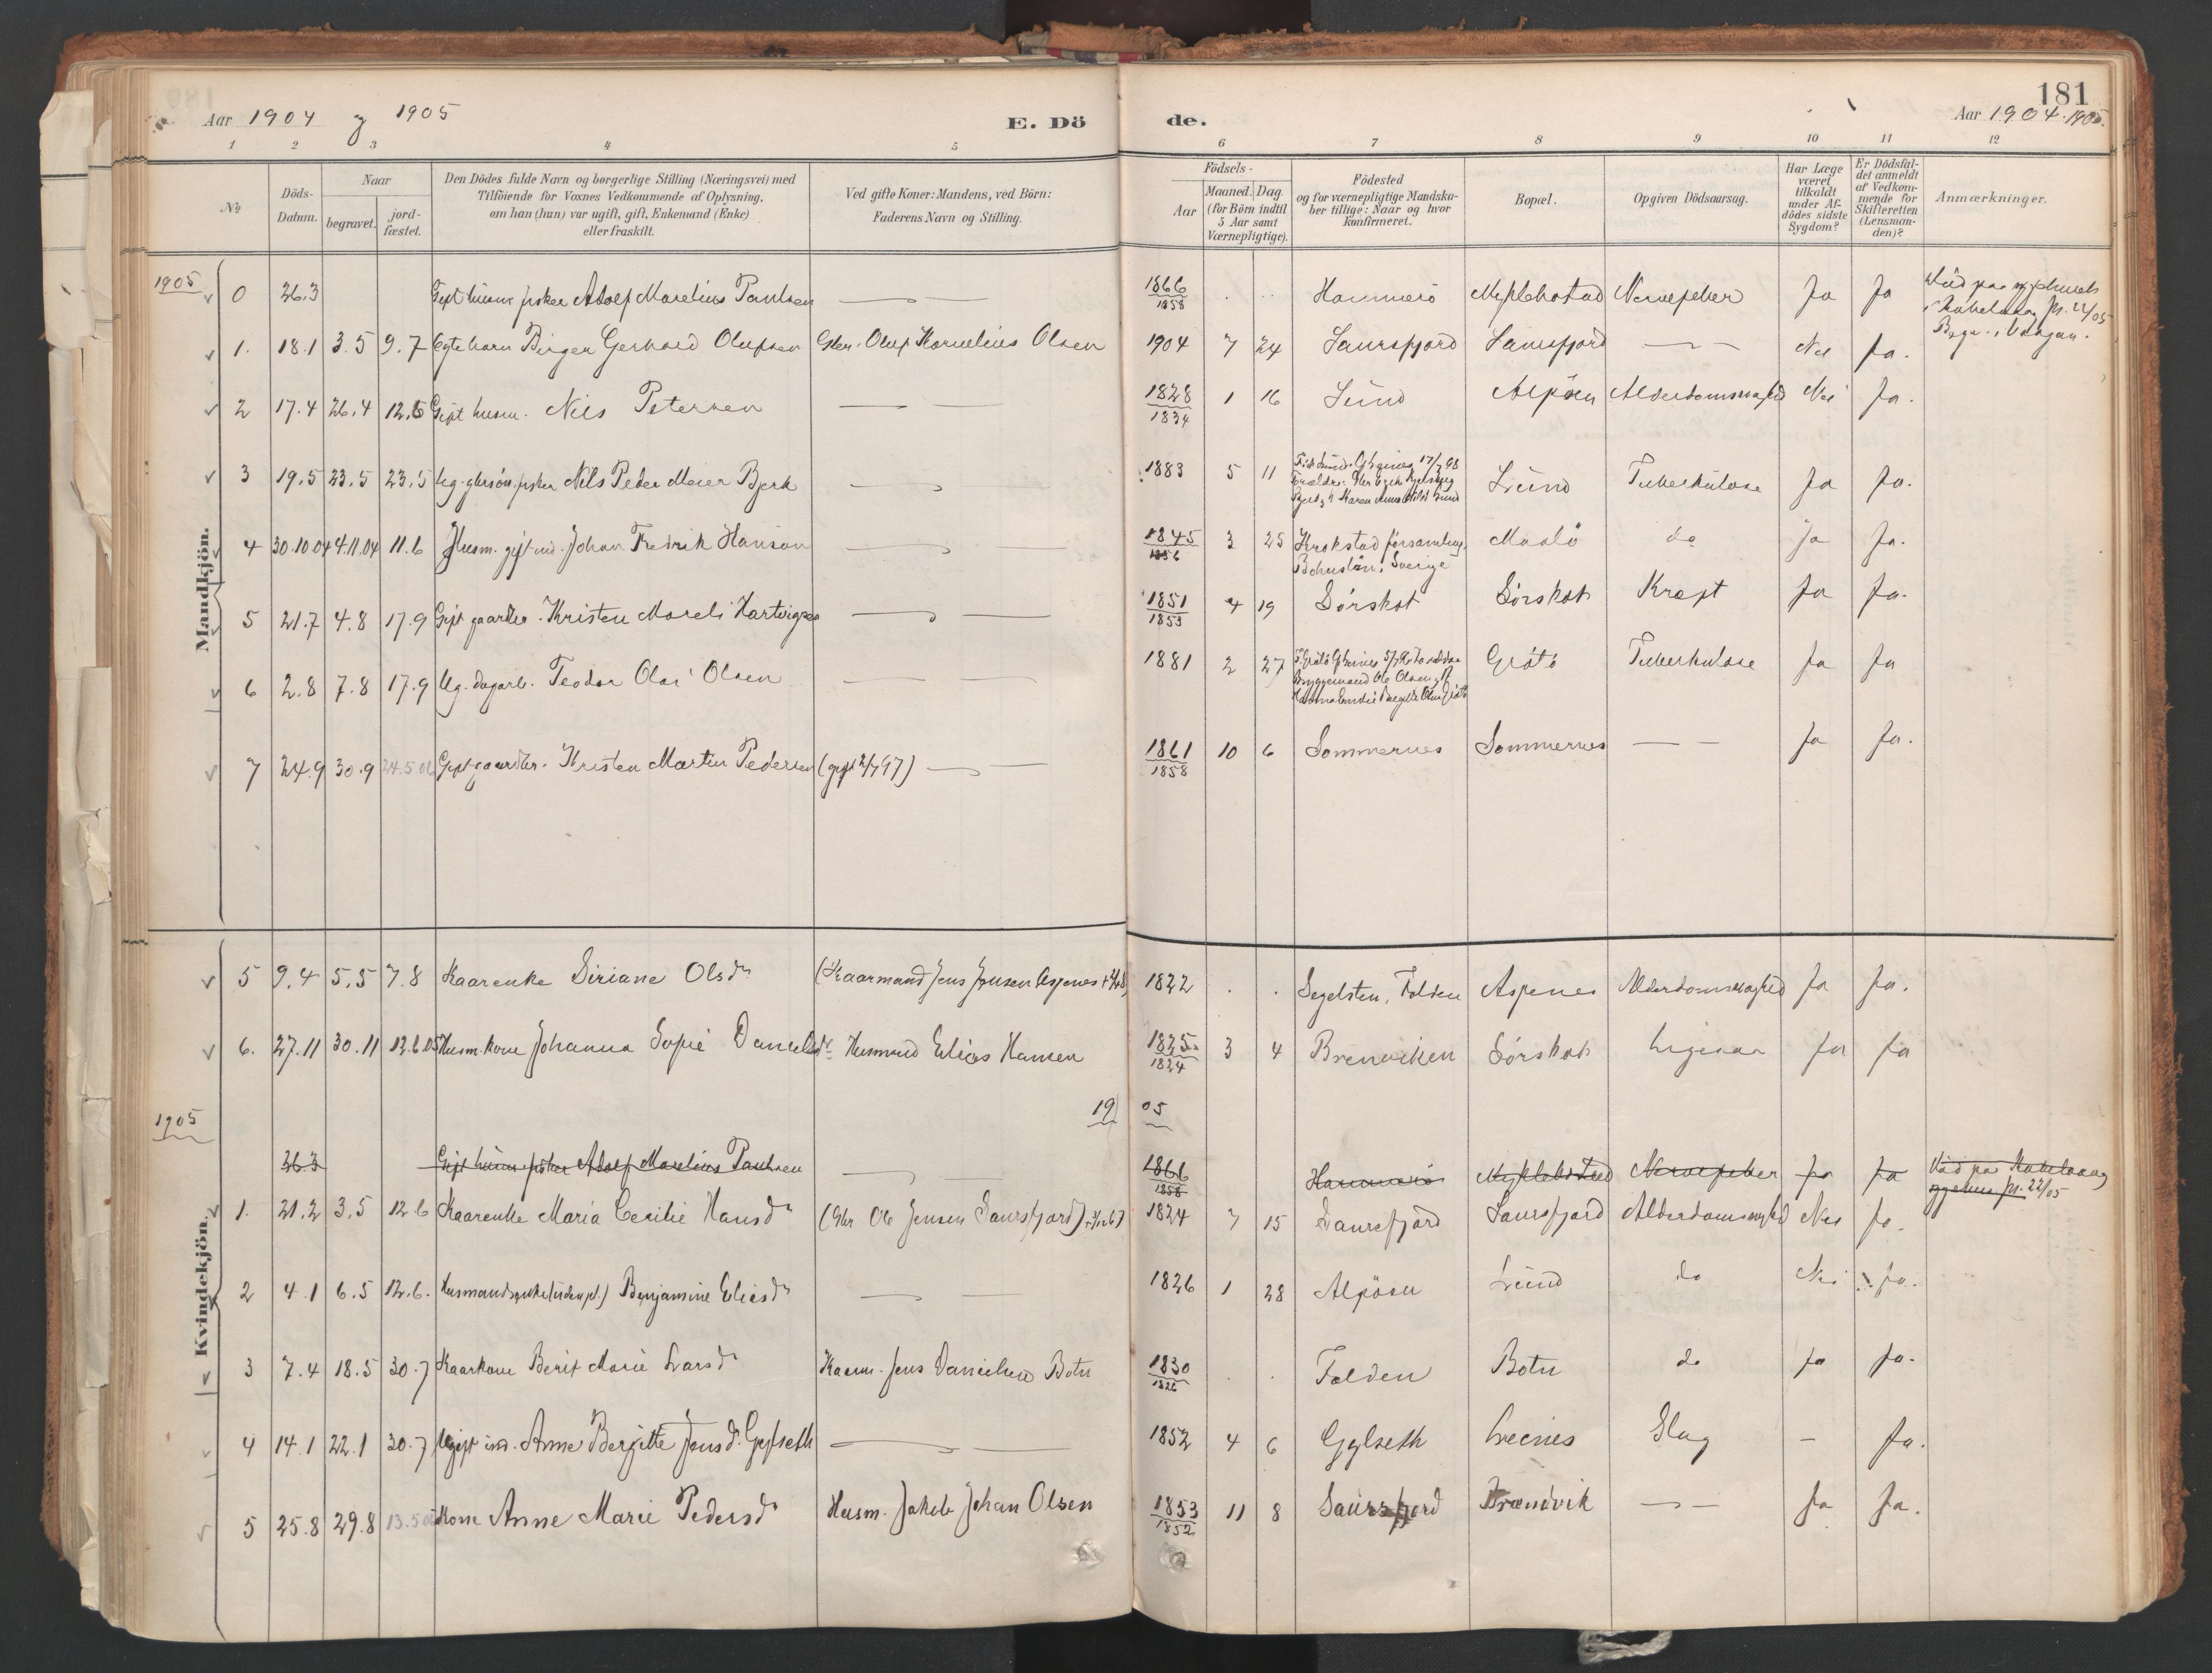 181
Aar 1904 og 1905
E. Dö
de.
Aar 1904. 1905.
1 2 3 4 5 6 7 8 9 10 11 12
№
Döds-Datum.
Naar
begravet.
jord-fæstet.
Den Dödes fulde Navn og borgerlige Stilling (Næringsvei) med
Tilföiende for Voxnes Vedkommende af Oplysning,
om han (hun) var ugift, gift, Enkemand (Enke)
eller fraskilt.
Ved gifte Koner: Mandens, ved Börn:
Faderens Navn og Stilling.
Födsels-
Aar
Maaned. Dag.
(for Börn indtil
5 Aar samt
Værnepligtige).
Födested
og for værnepligtige Mandska-
ber tillige: Naar og hvor
konfirmeret.
Bopæl.
Opgiven Dödsaarsag.
Har Læge
været
tilkaldt
under Af-
dödes sidste
Sygdom?
Er Dödsfal-
det anmeldt
af Vedkom-
mende for
Skifteretten
(Lensman-
den)?
Anmærkninger.
Mandkjön.
1905
0 26.3 Gift husm. fisker Adolf Marelius Paulsen 1866 1858 Hammerö Myklebostad Nervefeber Ja Ja Död paa sygehuset
1. 18.1 3.5 9.7 Egtebarn Birger Gerhard Olufsen Gbr. Oluf Kornelius Olsen 1904 7 24 Saursfjord Saursfjord Nei Ja.
2 17.4 26.4 12.6 Gift husm. Nils Petersen 1828 1834 1 16 Lund Alpöen Alderdomssvaghed Nei Ja.
3 19.5 23.5 23.5 Ug. fisker Nils Peder Meier Bjerk 1883 5 11 Lund Tuberkulose Ja Ja.
4 30.10.04 4.11.04 11.6 Husm. gift ind. Johan Fredrik Hanson 1845 1856 3 25 Krokstad församling, Bohuslän, Sverige Maalö do Ja Ja.
5 21.7 4.8 17.9 Gift gaardbr. Kristen Mareli Hartvigsen 1851 1853 4 19 Sörskot Sörskot Kræft Ja Ja.
6 2.8 7.8 17.9 Ug. dagarb. Teodor Olai Olsen 1881 2 27 Grötö Tuberkulose Ja Ja
7 24.9 30.9 24.5.06 Gift gaardbr. Kristen Martin Pedersen (gift 2/7 97) 1861 1858 10 6 Sommernes Sommernes Ja Ja.
Kvindekjön.
5 9.4 5.5 7.8 Kaarenke Siriane Olsdr (Kaarmand Jens Jensen Aspenes 1822 Segelsten, Folden Aspenes Alderdomssvaghed Ja Ja.
6. 27.11 30.11 12.6.05 Husm. kone Johanna Sofie Danielsdr Husmand Elias Hansen 1825 1824 3 4 Brenviken Sörskot Ligesaa Ja Ja
1905
1905
26.3 Gift husm. fisker Adolf Marelius Paulsen 1866 1858 Hammerö Myklebostad Nervefeber Ja Ja Död paa Kabelvaag sygehus 22/05
1. 21.2 3.5 12.6 Kaarenke Maria Cecilie Hansdr (Gbr Ole Jensen Saursfjord) 1824 7 15 Saursfjord Saursfjord Alderdomssvaghed Nei Ja.
2 4.1 6.5 12.6. Husmandsenke Benjamine Eliasdr 1826 1 28 Alpöen Lund do Nei Ja.
3 7.4 18.5 30.7 Kaarkone Berit Marie Larsdr Kaarm. Jens Danielsen Botn 1830 1826 Folden Botn do Ja Ja.
4 14.1 22.1 30.7 Ugift ind. Anne Bergitte Jensdr. Gylseth 1852 4 6 Gylseth Leenes Slag - Ja.
5 25.8 29.8 Kone Anne Marie Pedersdr Husm. Jakob Johan Olsen 1853 1852 11 8 Saursfjord Brændvik Ja Ja.